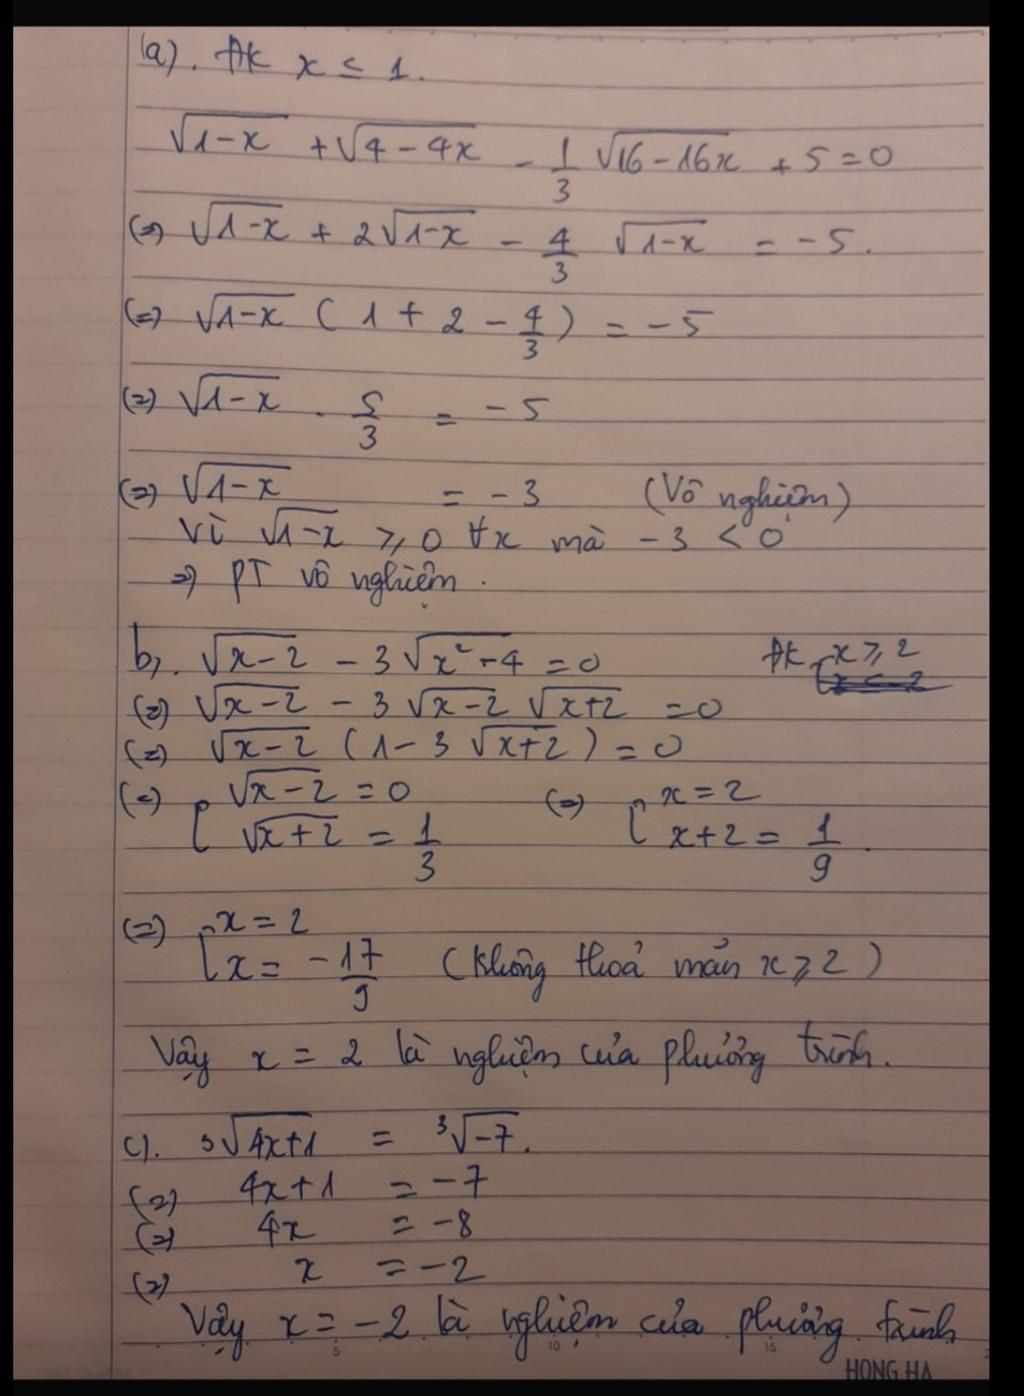 (a). ĐK x ≤ 1.
√(1-x) + √(4-4x) - 1/3 √(16-16x) + 5 = 0
(=) √(1-x) + 2√(1-x) - 4/3 √(1-x) = -5.
(=) √(1-x) (1 + 2 - 4/3) = -5
(=) √(1-x) . 5/3 = -5
(=) √(1-x) = -3 (Vô nghiệm)
Vì √(1-x) ≥ 0 ∀x mà -3 < 0
=> PT vô nghiệm.
b). √(x-2) - 3√(x²-4) = 0 ĐK [x ≥ 2
(=) √(x-2) - 3√(x-2) √(x+2) = 0
(=) √(x-2) (1 - 3√(x+2)) = 0
(=) [√(x-2) = 0 (=) [x = 2
√(x+2) = 1/3 x+2 = 1/9.
(=) [x = 2
x = -17/9 (không thoả mãn x ≥ 2)
Vậy x = 2 là nghiệm của phương trình.
c). ³√(4x+1) = ³√(-7).
(=) 4x+1 = -7
(=) 4x = -8
(=) x = -2
Vậy x = -2 là nghiệm của phương trình
5 10 15
HONG HA